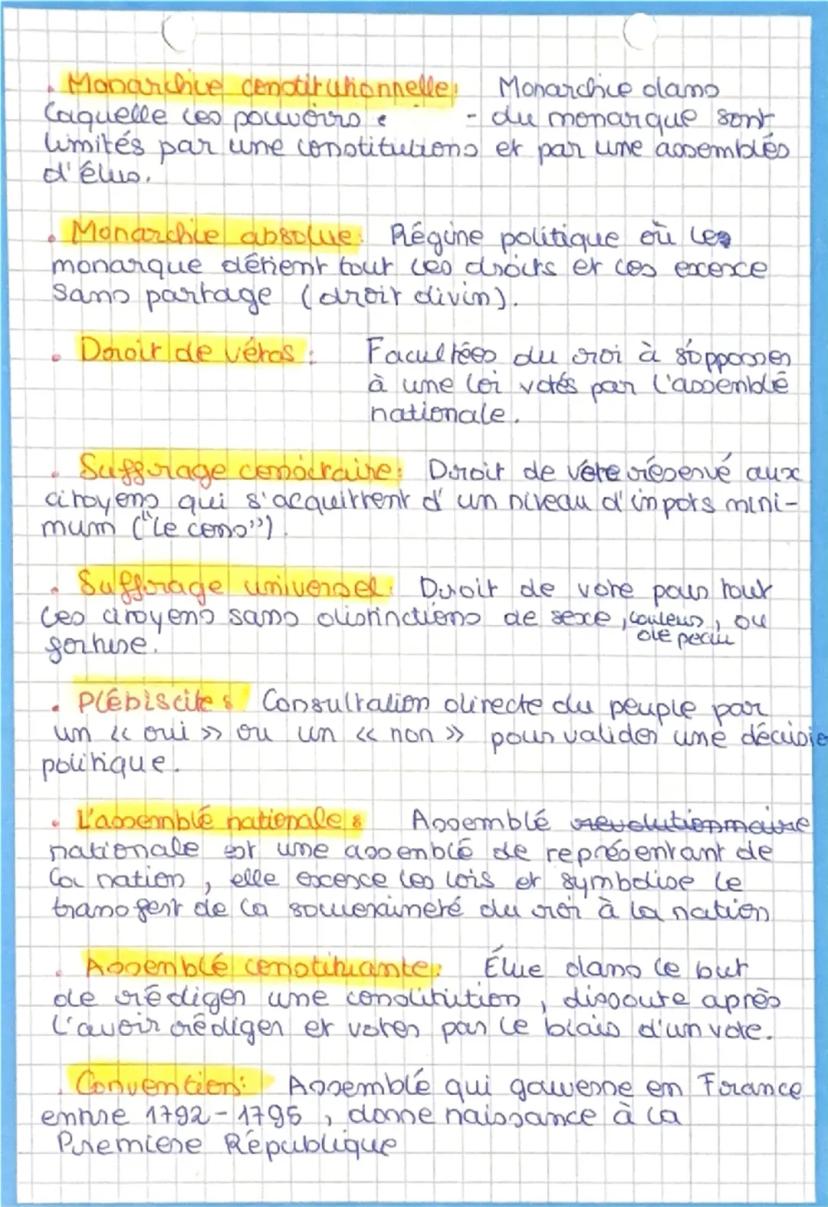 . Monarchie constitutionnelle: Monarchie dans
laquelle les pouvoirs - du monarque sont
limités par une constitutions et par une assemblés
d'élus.
. Monarchie absolue: Régime politique où les
monarque détient tout les droits et les excerce
sans partage (droit divin).
. Droit de vétos : Facultées du roi à s'opposser
à une loi votés par l'assemblé
nationale.
. Suffrage censitaire: Droit de vote réservé aux
citoyens qui s'acquittent d'un niveau d'impots mini-
mum ("le cens").
. Suffrage universel: Droit de vote pour tout
les citoyens sans distinctions de sexe, couleur, ou
de peau
fortune.
. Plébiscite : Consultation directe du peuple par
un « oui » ou un « non » pour valider une décisio
politique.
. L'assemblé nationale : Assemblé revolutionnaire
nationale est une assemblé de représentant de
la nation, elle excerce les lois et symbolise le
transfert de la souveraineté du roi à la nation
. Assemblé constituante: Élue dans le but
de rédiger une constitution, dissoute après
l'avoir rédiger et voter par le biais d'un vote.
. Convention: Assemblé qui gouverne en France
entre 1792-1795, donne naissance à la
Premiere République